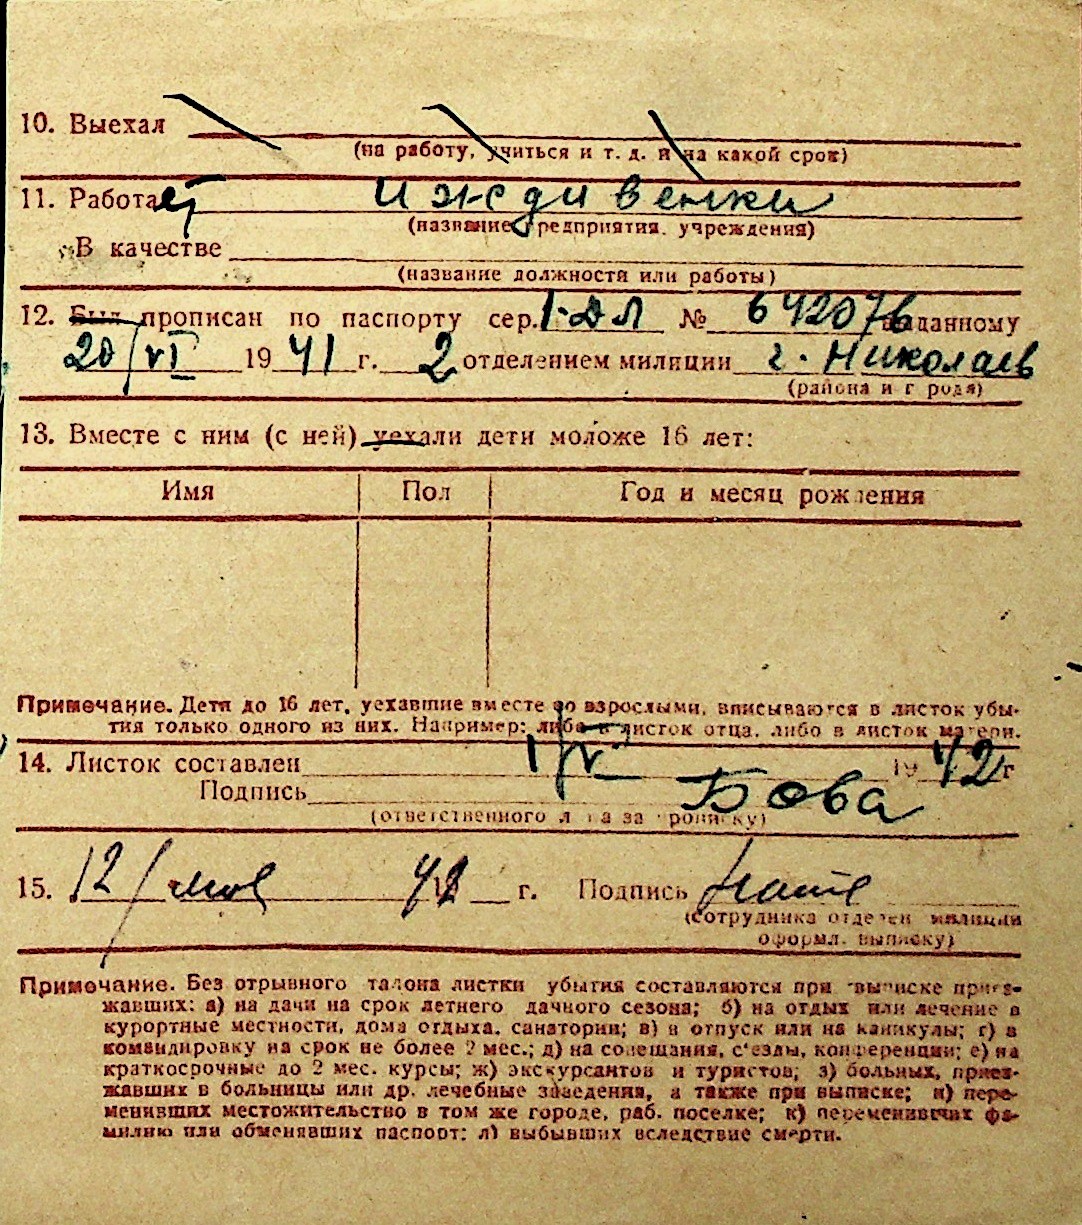 10. Выехал
(на работу, учиться и т. д. и на какой срок)
11. Работает иждивенки
(название предприятия, учреждения)
В качестве
(название должности или работы)
12. Был прописан по паспорту сер. I-ДЛ № 642076 выданному
20/VI 1941 г. 2 отделением милиции г. Николаев
(района и города)
13. Вместе с ним (с ней) уехали дети моложе 16 лет:
Имя Пол Год и месяц рождения
Примечание. Дети до 16 лет, уехавшие вместе со взрослыми, вписываются в листок убы-
тия только одного из них. Например: либо в листок отца, либо в листок матери.
14. Листок составлен 1/V 1942 г
Подпись Бова
(ответственного лица за прописку)
15. 12/ 42 г. Подпись
(сотрудника отделен милиции
оформл. выписку)
Примечание. Без отрывного талона листки убытия составляются при выписке приез-
жавших: а) на дачи на срок летнего дачного сезона; б) на отдых или лечение в
курортные местности, дома отдыха, санатории; в) в отпуск или на каникулы; г) в
командировку на срок не более 2 мес.; д) на совещания, с'езды, конференции; е) на
краткосрочные до 2 мес. курсы; ж) экскурсантов и туристов; з) больных, приез-
жавших в больницы или др. лечебные заведения, а также при выписке; и) пере-
менивших местожительство в том же городе, раб. поселке; к) переменивших фа-
милию или обменявших паспорт; л) выбывших вследствие смерти.